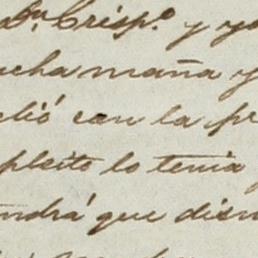 Dn. Crisp.o y y
ucha maña y
lió con la pr
pleito lo tenia
ndrá que dism